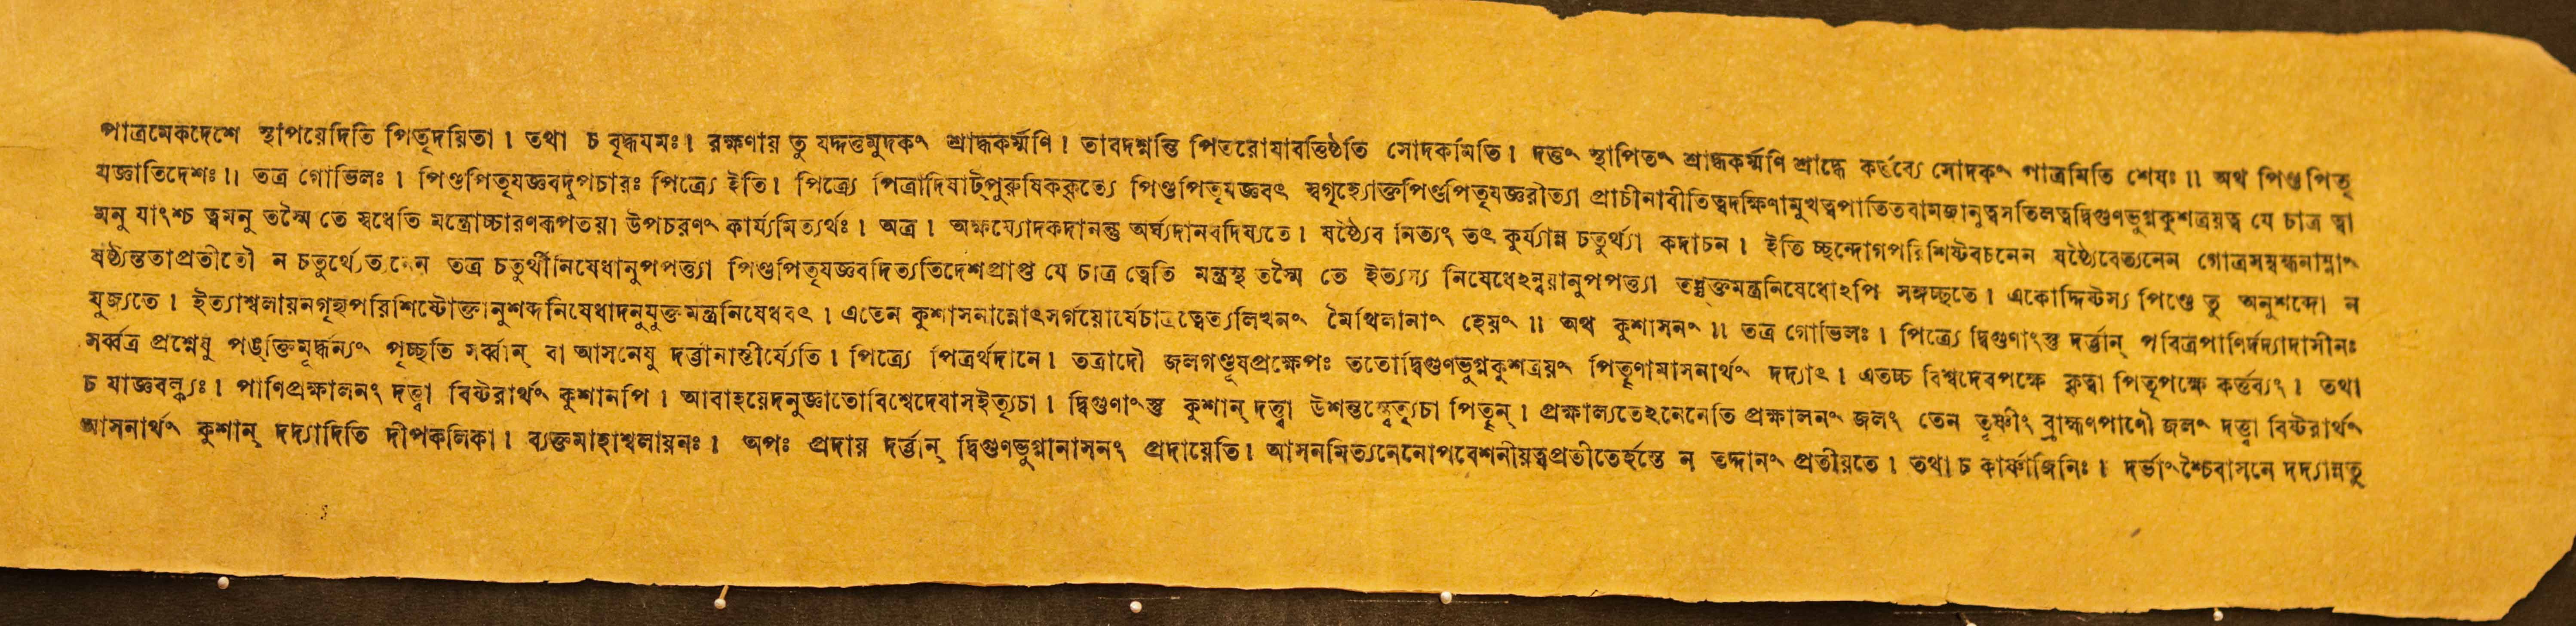 পাত্রমেকদেশে স্থাপয়েদিতি পিতৃদয়িতা । তথা চ বৃদ্ধযমঃ । রক্ষণায় তু যদ্দত্তমুদকং শ্রাদ্ধকর্ম্মণি । তাবদশ্নন্তি পিতরোযাবত্তিষ্ঠতি সোদকমিতি । দত্তং স্থাপিতং শ্রাদ্ধকর্ম্মণি শ্রাদ্ধে কর্ত্তব্যে সোদকং পাত্রমিতি শেষঃ ॥ অথ পিণ্ডপিতৃ
যজ্ঞাতিদেশঃ ॥ তত্র গোভিলঃ । পিণ্ডপিতৃযজ্ঞবদুপচারঃ পিত্র্যে ইতি । পিত্র্যে পিত্রাদিষাট্‌পুরুষিককৃত্যে পিণ্ডপিতৃযজ্ঞবৎ স্বগৃহ্যোক্তপিণ্ডপিতৃযজ্ঞরীত্যা প্রাচীনাবীতিত্বদক্ষিণামুখত্বপাতিতবামজানুত্বসতিলত্বদ্বিগুণভুগ্নকুশত্রয়ত্ব যে চাত্র ত্বা
মনু যাংশ্চ ত্বমনু তস্মৈ তে স্বধেতি মন্ত্রোচ্চারণরূপতয়া উপচরণং কার্য্যমিত্যর্থঃ । অত্র । অক্ষয্যোদকদানন্তু অর্ঘ্যদানবদিষ্যতে । ষষ্ঠ্যৈব নিত্যং তৎ কুর্য্যান্ন চতুর্থ্যা কদাচন । ইতি চ্ছন্দোগপরিশিষ্টবচনেন ষষ্ঠ্যৈবেত্যনেন গোত্রসম্বন্ধনাম্নাং
ষষ্ঠ্যন্ততাপ্রতীতৌ ন চতুর্থ্যেত্যনেন তত্র চতুর্থীনিষেধানুপপত্ত্যা পিণ্ডপিতৃযজ্ঞবদিত্যতিদেশপ্রাপ্ত যে চাত্র ত্বেতি মন্ত্রস্থ তস্মৈ তে ইত্যস্য নিষেধেঽন্বয়ানুপপত্ত্যা তদ্যুক্তমন্ত্রনিষেধোঽপি সঙ্গচ্ছতে । একোদ্দিষ্টস্য পিণ্ডে তু অনুশব্দো ন
যুজ্যতে । ইত্যাশ্বলায়নগৃহ্যপরিশিষ্টোক্তানুশব্দনিষেধাদনুযুক্তমন্ত্রনিষেধবৎ । এতেন কুশাসনান্নোৎসর্গয়োর্যেচাত্রত্বেত্যলিখনং মৈথিলানাং হেয়ং ॥ অথ কুশাসনং ॥ তত্র গোভিলঃ । পিত্র্যে দ্বিগুণাংস্তু দর্ভান্ পবিত্রপাণির্দদ্যাদাসীনঃ
সর্ব্বত্র প্রশ্নেষু পঙ্‌ক্তিমূর্দ্ধন্যং পৃচ্ছতি সর্ব্বান্ বা আসনেষু দর্ভানাস্তীর্য্যেতি । পিত্র্যে পিত্রর্থদানে । তত্রাদৌ জলগণ্ডূষপ্রক্ষেপঃ ততোদ্বিগুণভুগ্নকুশত্রয়ং পিতৄণামাসনার্থং দদ্যাৎ । এতচ্চ বিশ্বদেবপক্ষে কৃত্বা পিতৃপক্ষে কর্ত্তব্যং । তথা
চ যাজ্ঞবল্ক্যঃ । পাণিপ্রক্ষালনং দত্ত্বা বিষ্টরার্থং কুশানপি । আবাহয়েদনুজ্ঞাতোবিশ্বেদেবাসইত্যৃচা । দ্বিগুণাংস্তু কুশান্ দত্ত্বা উশন্তস্ত্বেত্যৃচা পিতৄন্ । প্রক্ষাল্যতেঽনেনেতি প্রক্ষালনং জলং তেন তূষ্ণীং ব্রাহ্মণপাণৌ জলং দত্ত্বা বিষ্টরার্থং
আসনার্থং কুশান্ দদ্যাদিতি দীপকলিকা । ব্যক্তমাহাশ্বলায়নঃ । অপঃ প্রদায় দর্ভান্ দ্বিগুণভুগ্নানাসনং প্রদায়েতি । আসনমিত্যনেনোপবেশনীয়ত্বপ্রতীতের্হস্তে ন তদ্দানং প্রতীয়তে । তথা চ কার্ষ্ণাজিনিঃ । দর্ভাংশ্চৈবাসনে দদ্যান্নতু